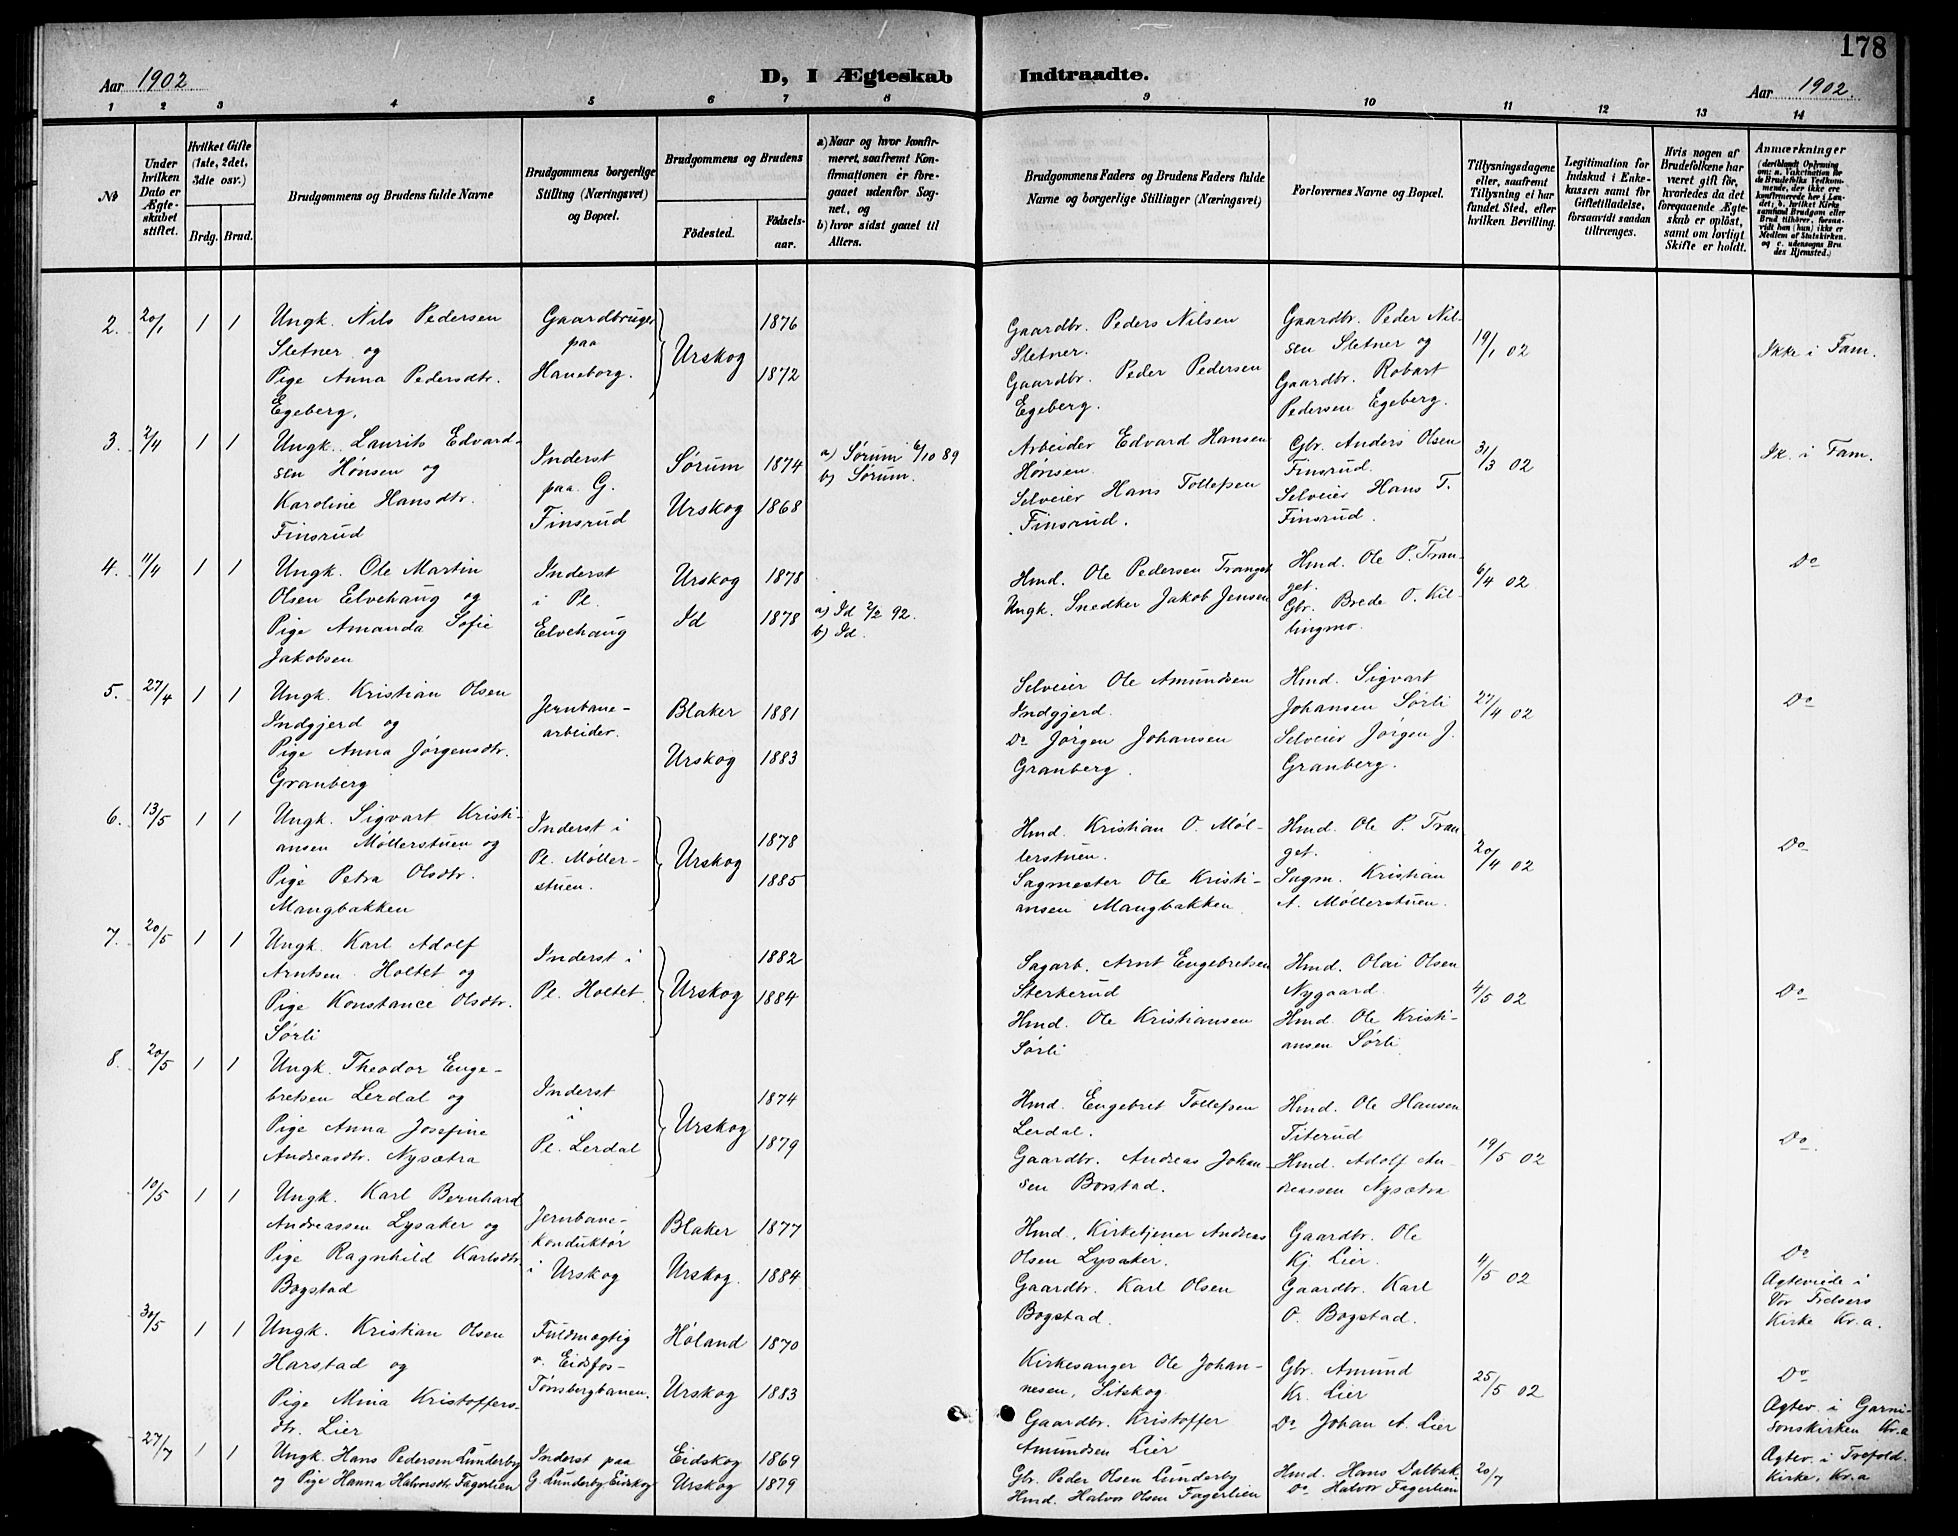 178
Aar 1902
D, I Ægteskab Indtraadte.
Aar 1902.
1 2 3 4 5 6 7 8 9 10 11 12 13 14
No
Under hvilken Dato er Ægteskabet stiftet.
Hvilket Gifte (1ste, 2det, 3die osv.)
Brdg. Brud.
Brudgommens og Brudens fulde Navne
Brudgommens borgerlige Stilling (Næringsvei) og Bopæl.
Brudgommens og Brudens
Födested.
Födsels-aar.
a) Naar og hvor konfirmeret, saafremt Konfirmationen er foregaaet udenfor Sognet, og
b) hvor sidst gaaet til Alters.
Brudgommens Faders og Brudens Faders fulde Navne og borgerlige Stillinger (Næringsvei)
Forlovernes Navne og Bopæl.
Tillysningsdagene eller, saafremt Tillysning ei har fundet Sted, efter hvilken Bevilling.
Legitimation for Indskud i Enkekassen samt for Giftetilladelse, forsaavidt saadan tiltrænges.
Hvis nogen af Brudefolkene har været gift för, hvorledes da det foregaaende Ægteskab er oplöst, samt om lovligt Skifte er holdt.
Anmærkninger
(deriblandt Oplysning om: a. Vakcination for de Brudefolks Vedkommende, der ikke ere konfirmerede her i Landet; b. hvilket Kirkesamfund Brudgom eller Brud tilhörer, forsaavidt han (hun) ikke er Medlem af Statskirken. og c. udensogns Brudes Hjemsted.)
2. 20/1 1 1
Ungk. Nils Pedersen
Sletner og
Pige Anna Pedersdtr.
Egeberg,
Gaardbruger
paa
Haneborg.
Urskog
1876
1872
Gaardbr. Peders Nilsen
Sletner.
Gaardbr. Peder Pedersen
Egeberg.
Gaardbr. Peder Nil-
sen Sletner og
Gaardbr. Robart
Pedersen Egeberg.
19/1 02
Ikke i Fam.
3. 2/4 1 1
Ungk. Laurits Edvard-
sen Hønsen og
Karoline Hansdtr.
Finsrud
Inderst
paa G.
Finsrud
Sørum 1874
Urskog 1868
a) Sørum 6/10 89
b) Sørum.
Arbeider Edvard Hansen
Hønsen.
Selveier Hans Tollefsen
Finsrud.
Gbr. Anders Olsen
Finsrud.
Selveier Hans T.
Finsrud.
31/3 02
Ik. i Fam.
4. 11/4 1 1
Ungk. Ole Martin
Olsen Elvehaug og
Pige Amanda Sofie
Jakobsen
Inderst
i Pl.
Elvehaug
Urskog 1878
Id 1878
a) Id 2/2 92.
b) Id.
Hmd. Ole Pedersen Tranget
Ungk. Snedker Jakob Jensen
Hmd. Ole P. Tran-
get.
Gbr. Brede O. Kil-
lingmo.
6/4 02
Do
5. 27/4 1 1
Ungk. Kristian Olsen
Indgjerd og
Pige Anna Jørgensdtr.
Granberg
Jernbane-
arbeider.
Blaker 1881
Urskog 1883
Selveier Ole Amundsen
Indgjerd.
Do Jørgen Johansen
Granberg.
Hmd. Sigvart
Johansen Sørli
Selveier Jørgen J.
Granberg.
27/4 02
Do
6. 13/5 1 1
Ungk. Sigvart Kristi-
ansen Møllerstuen og
Pige Petra Olsdtr.
Mangbakken
Inderst i
Pl. Møller-
stuen.
Urskog
1878
1885
Hmd. Kristian O. Møl-
lerstuen.
Sagmester Ole Kristi-
ansen Mangbakken
Hmd. Ole P. Tran
get.
Sagm. Kristian
A. Møllerstuen.
20/4 02
Do
7. 20/5 1 1
Ungk. Karl Adolf
Arntsen Holtet og
Pige Konstance Olsdtr.
Sørli
Inderst i
Pl. Holtet
Urskog
1882
1884
Sagarb. Arnt Engebretsen
Sterkerud
Hmd. Ole Kristiansen
Sørli
Hmd. Olai Olsen
Nygaard.
Hmd. Ole Kristi-
ansen Sørli
4/5 02
Do
8. 20/5 1 1
Ungk. Theodor Enge-
bretsen Lerdal og
Pige Anna Josefine
Andreasdtr. Nysætra
Inderst
i
Pl. Lerdal
Urskog
1874
1879
Hmd. Engebret Tollefsen
Lerdal.
Gaardbr. Andreas Johan-
sen Borstad.
Hmd. Ole Hansen
Titerud
Hmd. Adolf An-
dreassen Nysætra
19/5 02
Do.
10/5 1 1
Ungk. Karl Bernhard
Andreassen Lysaker og
Pige Ragnhild Karlsdtr.
Bogstad
Jernbane-
konduktør
i Urskog
Blaker 1877
Urskog. 1884
Hmd., Kirketjener Andreas
Olsen Lysaker.
Gaardbr. Karl Olsen
Bogstad.
Gaardbr. Ole
Kj. Lier.
Gaardbr. Karl
O. Bogstad.
4/5 02
Do
Ægteviede i
Vor Frelsers
Kirke Kr.a.
30/5 1 1
Ungk. Kristian Olsen
Harstad og
Pige Mina Kristoffers-
dtr. Lier
Fuldmægtig
v. Eidsfos-
Tønsbergbanen.
Høland 1870
Urskog 1883
Kirkesanger Ole Johan-
nesen, Sitskog
Gaardbr. Kristoffer
Amundsen Lier
Gbr. Amund
Kr. Lier
Do Johan A. Lier
25/5 02
Do
Ægtev. i Garni-
sonskirken Kr.a
27/7 1 1
Ungk. Hans Pedersen Lunderby
og Pige Hanna Halvorsdtr. Fagerlien
Inderst paa
G Lunderby Eidskog
Eidskog 1869
Urskog 1879
Gbr. Peder Olsen Lunderby
Hmd. Halvor Olsen Fagerlien
Hmd. Hans Dalbak
Do Halvor Fagerlien
20/7
Ægtev. i Trefold.
kirke, Kr.a